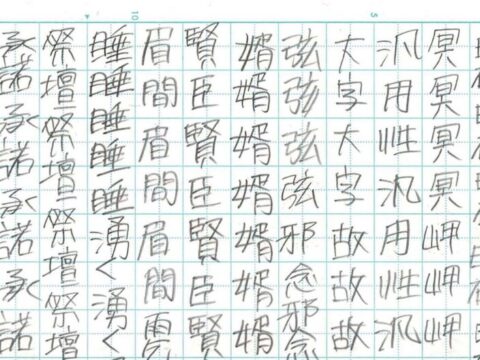 冥冥冥冥岬岬岬
汎用性汎用性汎
大字大字故故故
弦弦弦弦邪念邪念
婿婿婿婿婿婿婿
賢臣賢臣賢臣賢
眉間眉間眉間
睡睡睡睡湧く湧く
祭壇祭壇祭壇祭壇
承諾承諾承諾承諾
5
10